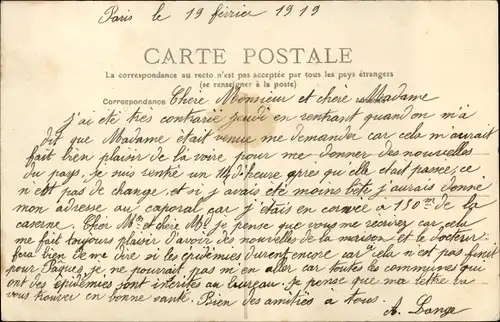 Paris le 19 février 1919
CARTE POSTALE
La correspondance au recto n'est pas acceptée par tous les pays étrangers
(se renseigner à la poste)
Correspondance Chère Monsieur et chère Madame
j'ai été très contrarié jeudi en rentrant quand on m'a
dit que Madame était venue me demander car cela m'aurait
fait bien plaisir de la voire pour me donner des nouvelles
du pays, je suis rentré un 1/4 d'heure après qu'elle était passée, ce
n'est pas de change, et si j'avais été moins bête j'aurais donné
mon adresse au caporal car j'étais en corvée à 150m de la
caserne. Cher Mr et chère Me je pense que vous me récrirez car cela
me fait toujours plaisir d'avoir des nouvelles de la maison et le docteur
fera bien de me dire si les épidémies durent encore car cela n'est pas
pour Pâques je ne pourrait pas m'en aller car toutes les communes qui
ont des épidémies sont inscrites au bureau. je pense que ma lettre va
vous trouver en bonne santé. Bien des amitiés à tous.
A. Lange